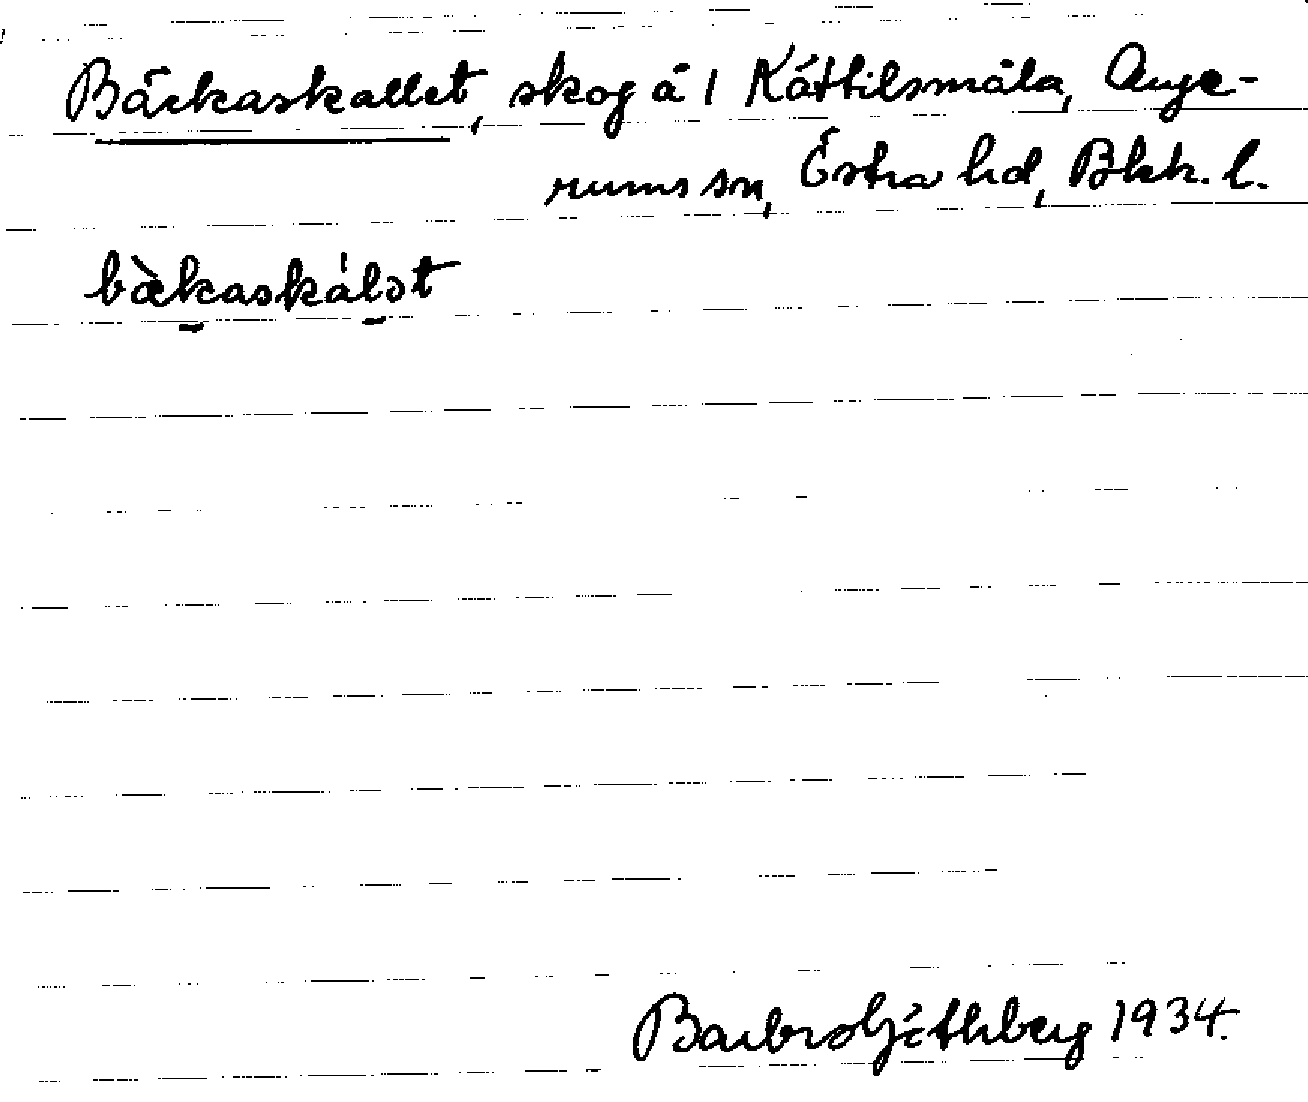 Bäckaskallet, skog å 1 Kättilsmåla, Auge-
rums sn, Östra hd, Blek. l.
bàkaskálət
Barbro Göthberg 1934.